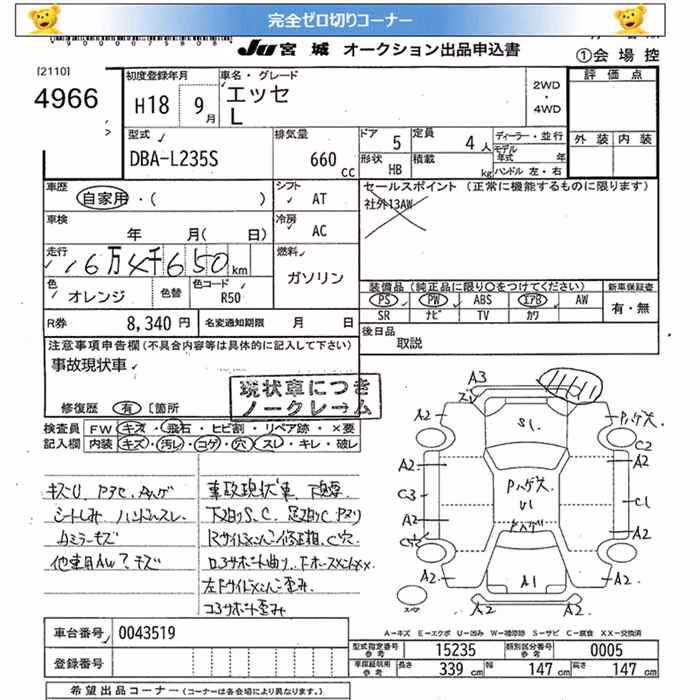 完全ゼロ切りコーナー
JU 宮城 オークション出品申込書
①会場控
[2110]
4966
初度登録年月
H18 9月
車名・グレード
エッセ
L
2WD
・
4WD
評価点
外装 内装
型式
DBA-L235S
排気量
660 cc
ドア 5
定員 4人
形状 HB
積載 kg
ディーラー・並行
モデル年式 年
ハンドル 左・右
車歴
自家用・( )
シフト
AT
セールスポイント (正常に機能するものに限ります)
社外13AW
車検
年 月( 日)
冷房
AC
走行
16万4千650km
燃料
ガソリン
色
オレンジ
色替
色コード
R50
装備品 (純正品に限り○をつけてください)
新車保証書
PS PW ABS エアB AW
SR ナビ TV カワ
有・無
R券
8,340円
名変通知期限 月 日
後日品
取説
注意事項申告欄 (不具合内容等は具体的に記入して下さい)
事故現状車
現状車につき
ノークレーム
修復歴 有 [箇所
検査員 FW キズ・飛石・ヒビ割・リペア跡・×要
記入欄 内装 キズ・汚レ・コゲ・穴・スレ・キレ・破レ
シートしみ ハンドルスレ
事故現状車
左Fサイドメンバー歪み
コアサポート歪み
A3
A2
S1
パハゲ大
C2
A2
A2
C3
パハゲ大
U1
C1
A2
A2
A2
A1
A2
スペア
A2
A2
車台番号 0043519
登録番号
A-キズ E-エクボ U-凹み W-補修跡 S-サビ C-腐食 XX-交換済
型式指定番号 参考 15235
類別区分番号 参考 0005
車庫証明用 参考 長さ 339cm 幅 147cm 高さ 147cm
希望出品コーナー (コーナーは各会場により異なります。)